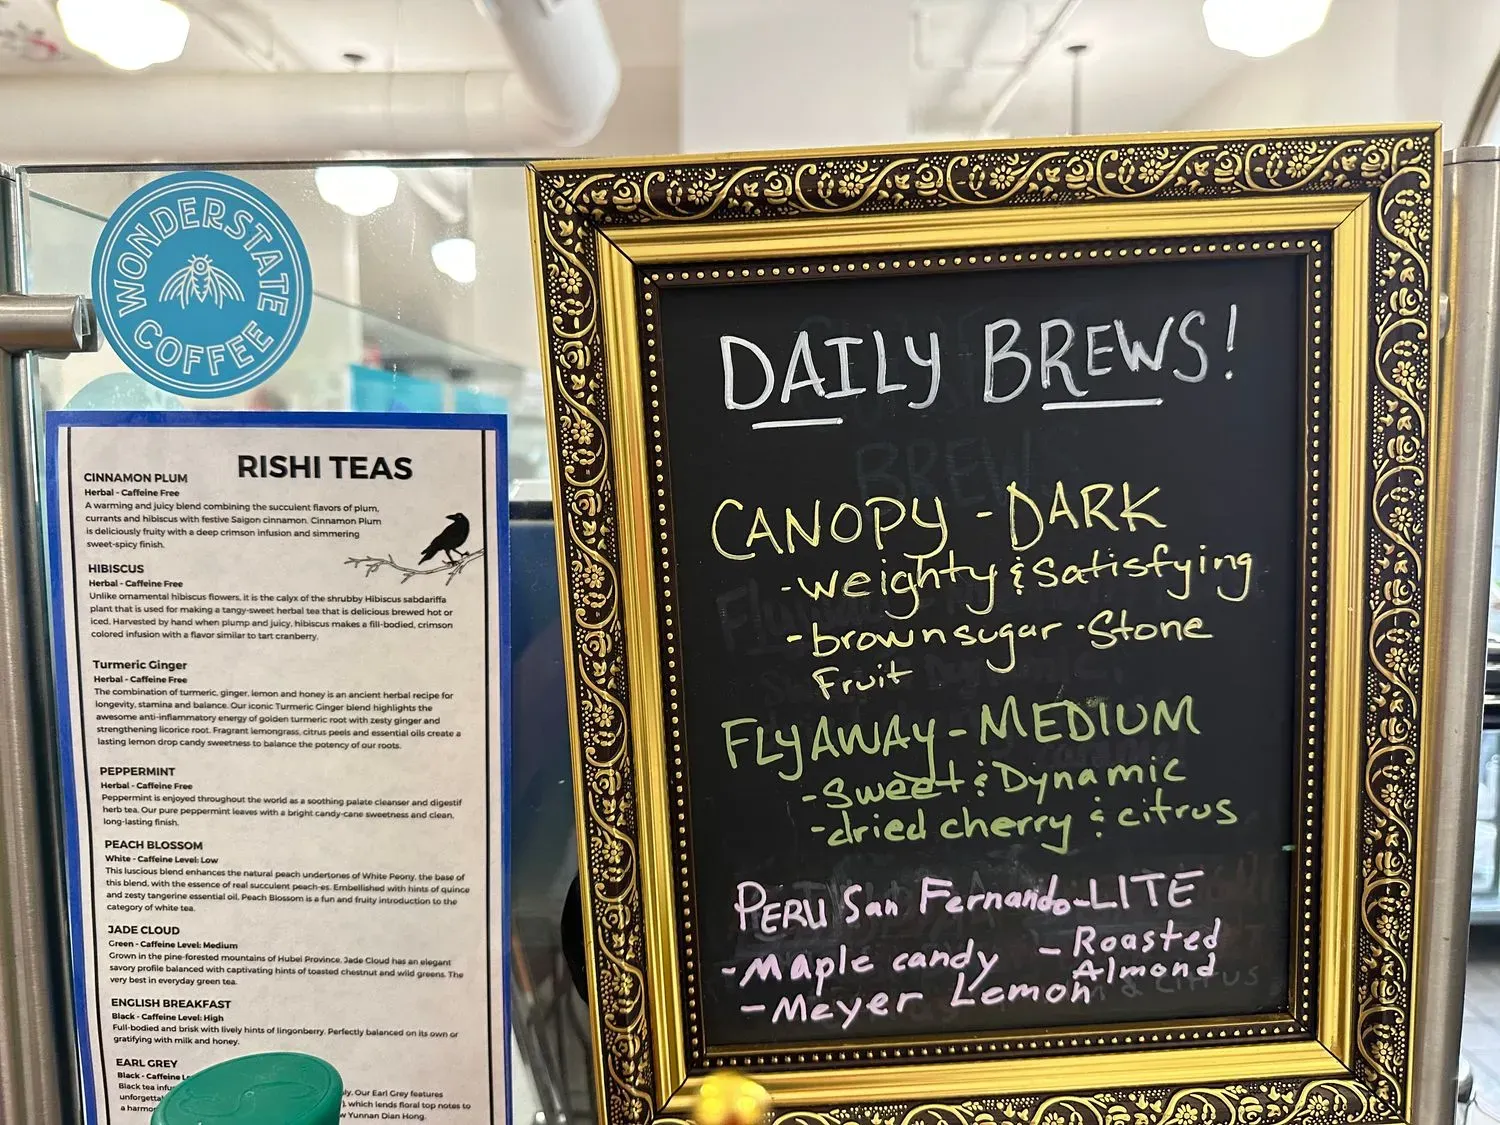 WONDERSTATE
COFFEE
RISHI TEAS
CINNAMON PLUM
Herbal - Caffeine Free
A warming and juicy blend combining the succulent flavors of plum,
currants and hibiscus with festive Saigon cinnamon. Cinnamon Plum
is deliciously fruity with a deep crimson infusion and simmering
sweet-spicy finish.
HIBISCUS
Herbal - Caffeine Free
Unlike ornamental hibiscus flowers, it is the calyx of the shrubby Hibiscus sabdariffa
plant that is used for making a tangy-sweet herbal tea that is delicious brewed hot or
iced. Harvested by hand when plump and juicy, hibiscus makes a fill-bodied, crimson
colored infusion with a flavor similar to tart cranberry.
Turmeric Ginger
Herbal - Caffeine Free
The combination of turmeric, ginger, lemon and honey is an ancient herbal recipe for
longevity, stamina and balance. Our iconic Turmeric Ginger blend highlights the
awesome anti-inflammatory energy of golden turmeric root with zesty ginger and
strengthening licorice root. Fragrant lemongrass, citrus peels and essential oils create a
lasting lemon drop candy sweetness to balance the potency of our roots.
PEPPERMINT
Herbal - Caffeine Free
Peppermint is enjoyed throughout the world as a soothing palate cleanser and digestif
herb tea. Our pure peppermint leaves with a bright candy-cane sweetness and clean,
long-lasting finish.
PEACH BLOSSOM
White - Caffeine Level: Low
This luscious blend enhances the natural peach undertones of White Peony, the base of
this blend, with the essence of real succulent peach-es. Embellished with hints of quince
and zesty tangerine essential oil, Peach Blossom is a fun and fruity introduction to the
category of white tea.
JADE CLOUD
Green - Caffeine Level: Medium
Grown in the pine-forested mountains of Hubei Province, Jade Cloud has an elegant
savory profile balanced with captivating hints of toasted chestnut and wild greens. The
very best in everyday green tea.
ENGLISH BREAKFAST
Black - Caffeine Level: High
Full-bodied and brisk with lively hints of lingonberry. Perfectly balanced on its own or
gratifying with milk and honey.
EARL GREY
Black - Caffeine
Black tea Our Earl Grey features
which lends floral top notes to
a Yunnan Dian Hong.
DAILY BREWS!
CANOPY - DARK
- weighty & satisfying
- brown sugar · Stone
Fruit
FLYAWAY - MEDIUM
- Sweet & Dynamic
- dried cherry & citrus
PERU San Fernando - LITE
- Maple candy - Roasted
Almond
- Meyer Lemon